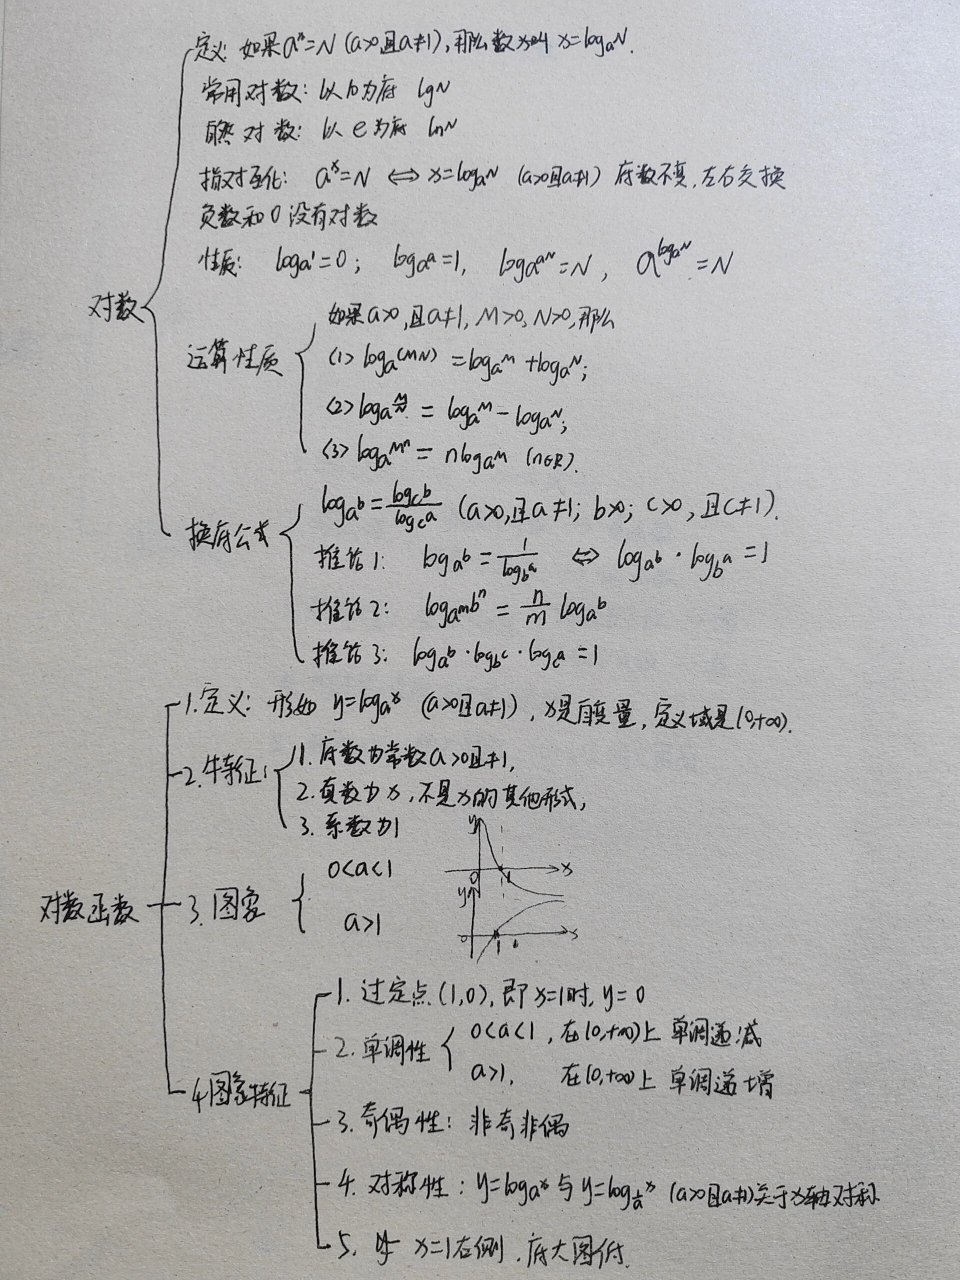 定义: 如果aˣ=N (a>0且a≠1), 那么数x叫 x=logₐN.
常用对数: 以10为底 lgN
自然对数: 以e为底 lnN
指对互化: aˣ=N ⇔ x=logₐN (a>0且a≠1) 底数不变,左右交换
负数和0没有对数
性质: logₐ1=0; logₐa=1, logₐaᴺ=N, a^(logₐN)=N
对数
如果a>0,且a≠1, M>0, N>0,那么
运算性质
(1) logₐ(MN) = logₐM + logₐN;
(2) logₐM/N = logₐM - logₐN;
(3) logₐMⁿ = nlogₐM (n∈R).
换底公式
logₐb = log_c b / log_c a (a>0,且a≠1; b>0; c>0,且c≠1).
推论1: logₐb = 1/log_b a ⇔ logₐb · log_b a = 1
推论2: log_{aᵐ}bⁿ = n/m logₐb
推论3: logₐb · log_b c · log_c a = 1
对数函数
1.定义: 形如 y=logₐx (a>0且a≠1), x是自变量, 定义域是(0,+∞).
2.特征:
1. 底数为常数a>0且≠1,
2. 真数为x,不是x的其他形式,
3. 系数为1
3.图象
0<a<1
y 0 1 x
a>1
y 0 1 x
4.图象特征
1. 过定点(1,0),即x=1时,y=0
2. 单调性
0<a<1, 在(0,+∞)上 单调递减
a>1, 在(0,+∞)上 单调递增
3. 奇偶性: 非奇非偶
4. 对称性: y=logₐx 与 y=log_{1/a}x (a>0且a≠1)关于x轴对称
5. x=1右侧,底大图低.